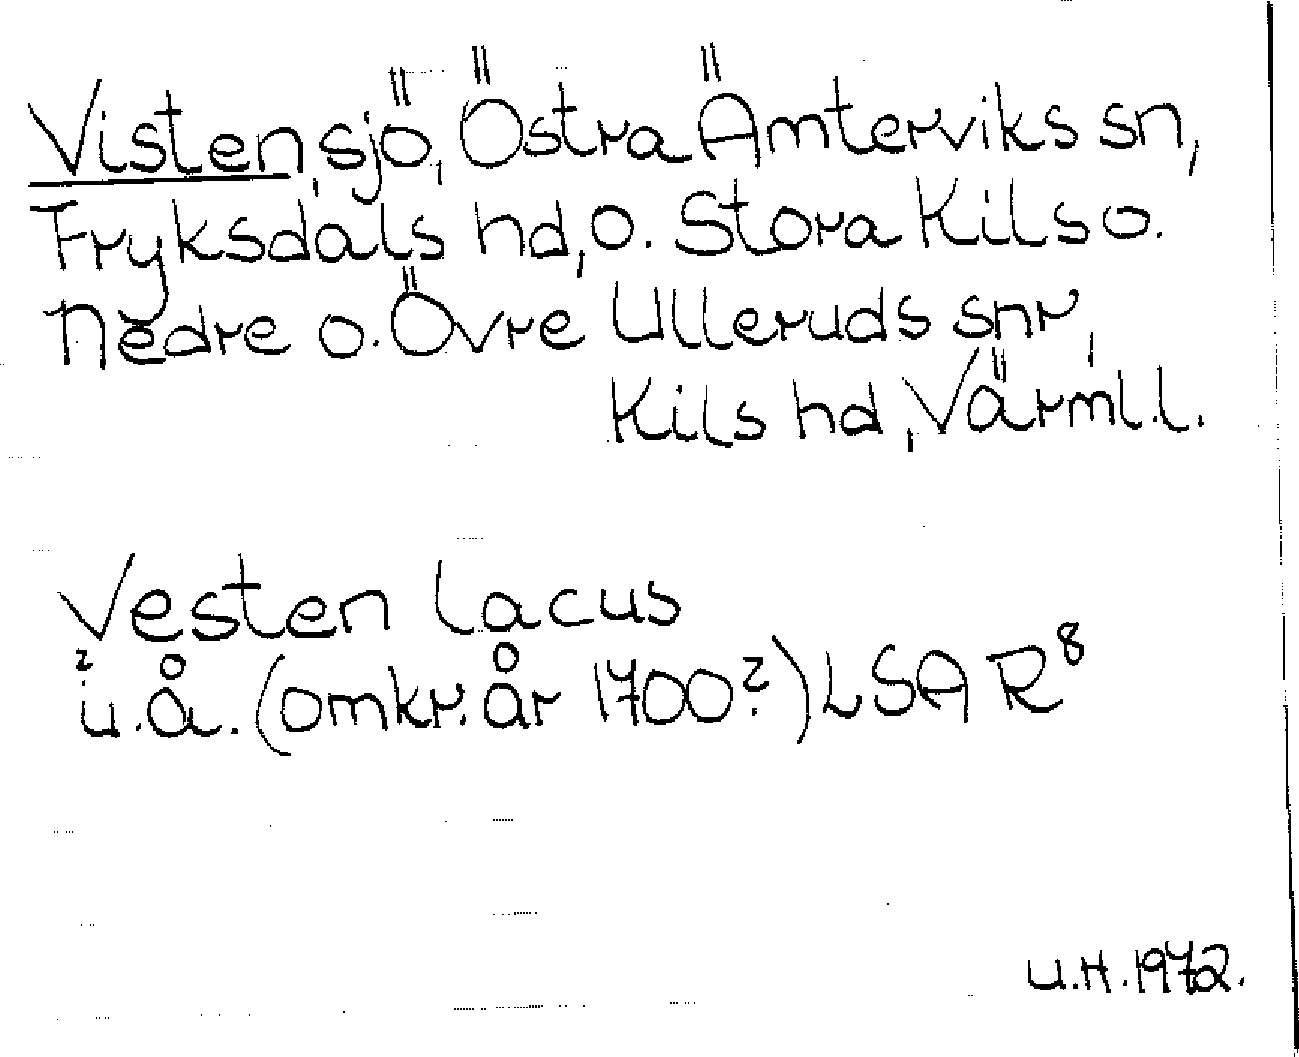 Visten, sjö, Östra Ämterviks sn,
Fryksdals hd, o. Stora Kils o.
Nedre o. Övre Ulleruds snr,
Kils hd, Värml. l.
Vesten lacus
u. å. (omkr. år 1700?) LSA R⁸
U.H. 1972.